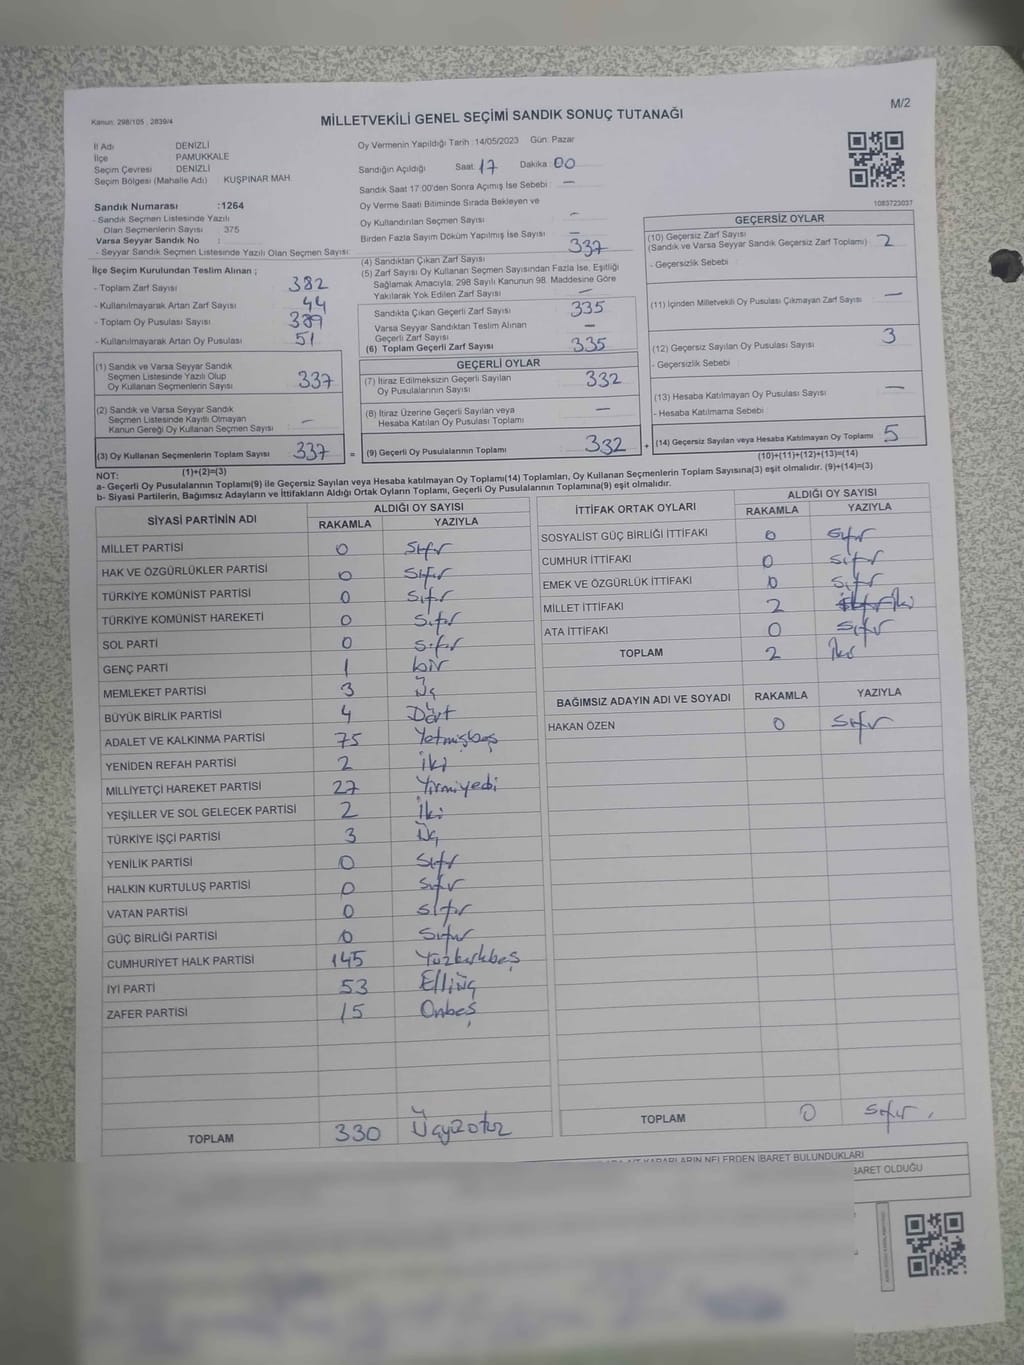 M/2
Kanun: 298/105, 2839/4
MİLLETVEKİLİ GENEL SEÇİMİ SANDIK SONUÇ TUTANAĞI
İl Adı DENİZLİ
İlçe PAMUKKALE
Seçim Çevresi DENİZLİ
Seçim Bölgesi (Mahalle Adı) KUŞPINAR MAH.
Sandık Numarası :1264
- Sandık Seçmen Listesinde Yazılı
Olan Seçmenlerin Sayısı : 375
Varsa Seyyar Sandık No :
- Seyyar Sandık Seçmen Listesinde Yazılı Olan Seçmen Sayısı:
İlçe Seçim Kurulundan Teslim Alınan ;
- Toplam Zarf Sayısı 382
- Kullanılmayarak Artan Zarf Sayısı 44
- Toplam Oy Pusulası Sayısı 389
- Kullanılmayarak Artan Oy Pusulası 51
(1) Sandık ve Varsa Seyyar Sandık
Seçmen Listesinde Yazılı Olup
Oy Kullanan Seçmenlerin Sayısı 337
(2) Sandık ve Varsa Seyyar Sandık
Seçmen Listesinde Kayıtlı Olmayan
Kanun Gereği Oy Kullanan Seçmen Sayısı —
(3) Oy Kullanan Seçmenlerin Toplam Sayısı 337
(1)+(2)=(3)
Oy Vermenin Yapıldığı Tarih :14/05/2023 Gün: Pazar
Sandığın Açıldığı Saat: 17 Dakika: 00
Sandık Saat 17:00'den Sonra Açımış İse Sebebi : —
Oy Verme Saati Bitiminde Sırada Bekleyen ve
Oy Kullandırılan Seçmen Sayısı : —
Birden Fazla Sayım Döküm Yapılmış İse Sayısı —
(4) Sandıktan Çıkan Zarf Sayısı 337
(5) Zarf Sayısı Oy Kullanan Seçmen Sayısından Fazla İse, Eşitliği
Sağlamak Amacıyla, 298 Sayılı Kanunun 98. Maddesine Göre
Yakılarak Yok Edilen Zarf Sayısı —
Sandıkta Çıkan Geçerli Zarf Sayısı 335
Varsa Seyyar Sandıktan Teslim Alınan
Geçerli Zarf Sayısı —
(6) Toplam Geçerli Zarf Sayısı 335
GEÇERLİ OYLAR
(7) İtiraz Edilmeksizin Geçerli Sayılan
Oy Pusulalarının Sayısı 332
(8) İtiraz Üzerine Geçerli Sayılan veya
Hesaba Katılan Oy Pusulası Toplamı —
= (9) Geçerli Oy Pusulalarının Toplamı 332 +
1083723037
GEÇERSİZ OYLAR
(10) Geçersiz Zarf Sayısı
(Sandık ve Varsa Seyyar Sandık Geçersiz Zarf Toplamı) 2
- Geçersizlik Sebebi :
(11) İçinden Milletvekili Oy Pusulası Çıkmayan Zarf Sayısı —
(12) Geçersiz Sayılan Oy Pusulası Sayısı 3
- Geçersizlik Sebebi :
(13) Hesaba Katılmayan Oy Pusulası Sayısı —
- Hesaba Katılmama Sebebi :
(14) Geçersiz Sayılan veya Hesaba Katılmayan Oy Toplamı 5
(10)+(11)+(12)+(13)=(14)
NOT:
a- Geçerli Oy Pusulalarının Toplamı(9) ile Geçersiz Sayılan veya Hesaba katılmayan Oy Toplamı(14) Toplamları, Oy Kullanan Seçmenlerin Toplam Sayısına(3) eşit olmalıdır. (9)+(14)=(3)
b- Siyasi Partilerin, Bağımsız Adayların ve İttifakların Aldığı Ortak Oyların Toplamı, Geçerli Oy Pusulalarının Toplamına(9) eşit olmalıdır.
SİYASİ PARTİNİN ADI ALDIĞI OY SAYISI
RAKAMLA YAZIYLA
MİLLET PARTİSİ 0 Sıfır
HAK VE ÖZGÜRLÜKLER PARTİSİ 0 Sıfır
TÜRKİYE KOMÜNİST PARTİSİ 0 Sıfır
TÜRKİYE KOMÜNİST HAREKETİ 0 Sıfır
SOL PARTİ 0 Sıfır
GENÇ PARTİ 1 bir
MEMLEKET PARTİSİ 3 Üç
BÜYÜK BİRLİK PARTİSİ 4 Dört
ADALET VE KALKINMA PARTİSİ 75 Yetmişbeş
YENİDEN REFAH PARTİSİ 2 iki
MİLLİYETÇİ HAREKET PARTİSİ 27 Yirmiyedi
YEŞİLLER VE SOL GELECEK PARTİSİ 2 İki
TÜRKİYE İŞÇİ PARTİSİ 3 Üç
YENİLİK PARTİSİ 0 Sıfır
HALKIN KURTULUŞ PARTİSİ 0 Sıfır
VATAN PARTİSİ 0 Sıfır
GÜÇ BİRLİĞİ PARTİSİ 0 Sıfır
CUMHURİYET HALK PARTİSİ 145 Yüzkırkbeş
İYİ PARTİ 53 Elliüç
ZAFER PARTİSİ 15 Onbeş
TOPLAM 330 Üçyüzotuz
İTTİFAK ORTAK OYLARI ALDIĞI OY SAYISI
RAKAMLA YAZIYLA
SOSYALİST GÜÇ BİRLİĞİ İTTİFAKI 0 Sıfır
CUMHUR İTTİFAKI 0 Sıfır
EMEK VE ÖZGÜRLÜK İTTİFAKI 0 Sıfır
MİLLET İTTİFAKI 2 İki
ATA İTTİFAKI 0 Sıfır
TOPLAM 2 İki
BAĞIMSIZ ADAYIN ADI VE SOYADI RAKAMLA YAZIYLA
HAKAN ÖZEN 0 Sıfır
TOPLAM 0 Sıfır
KARARLARIN NELERDEN İBARET BULUNDUKLARI
BARET OLDUĞU